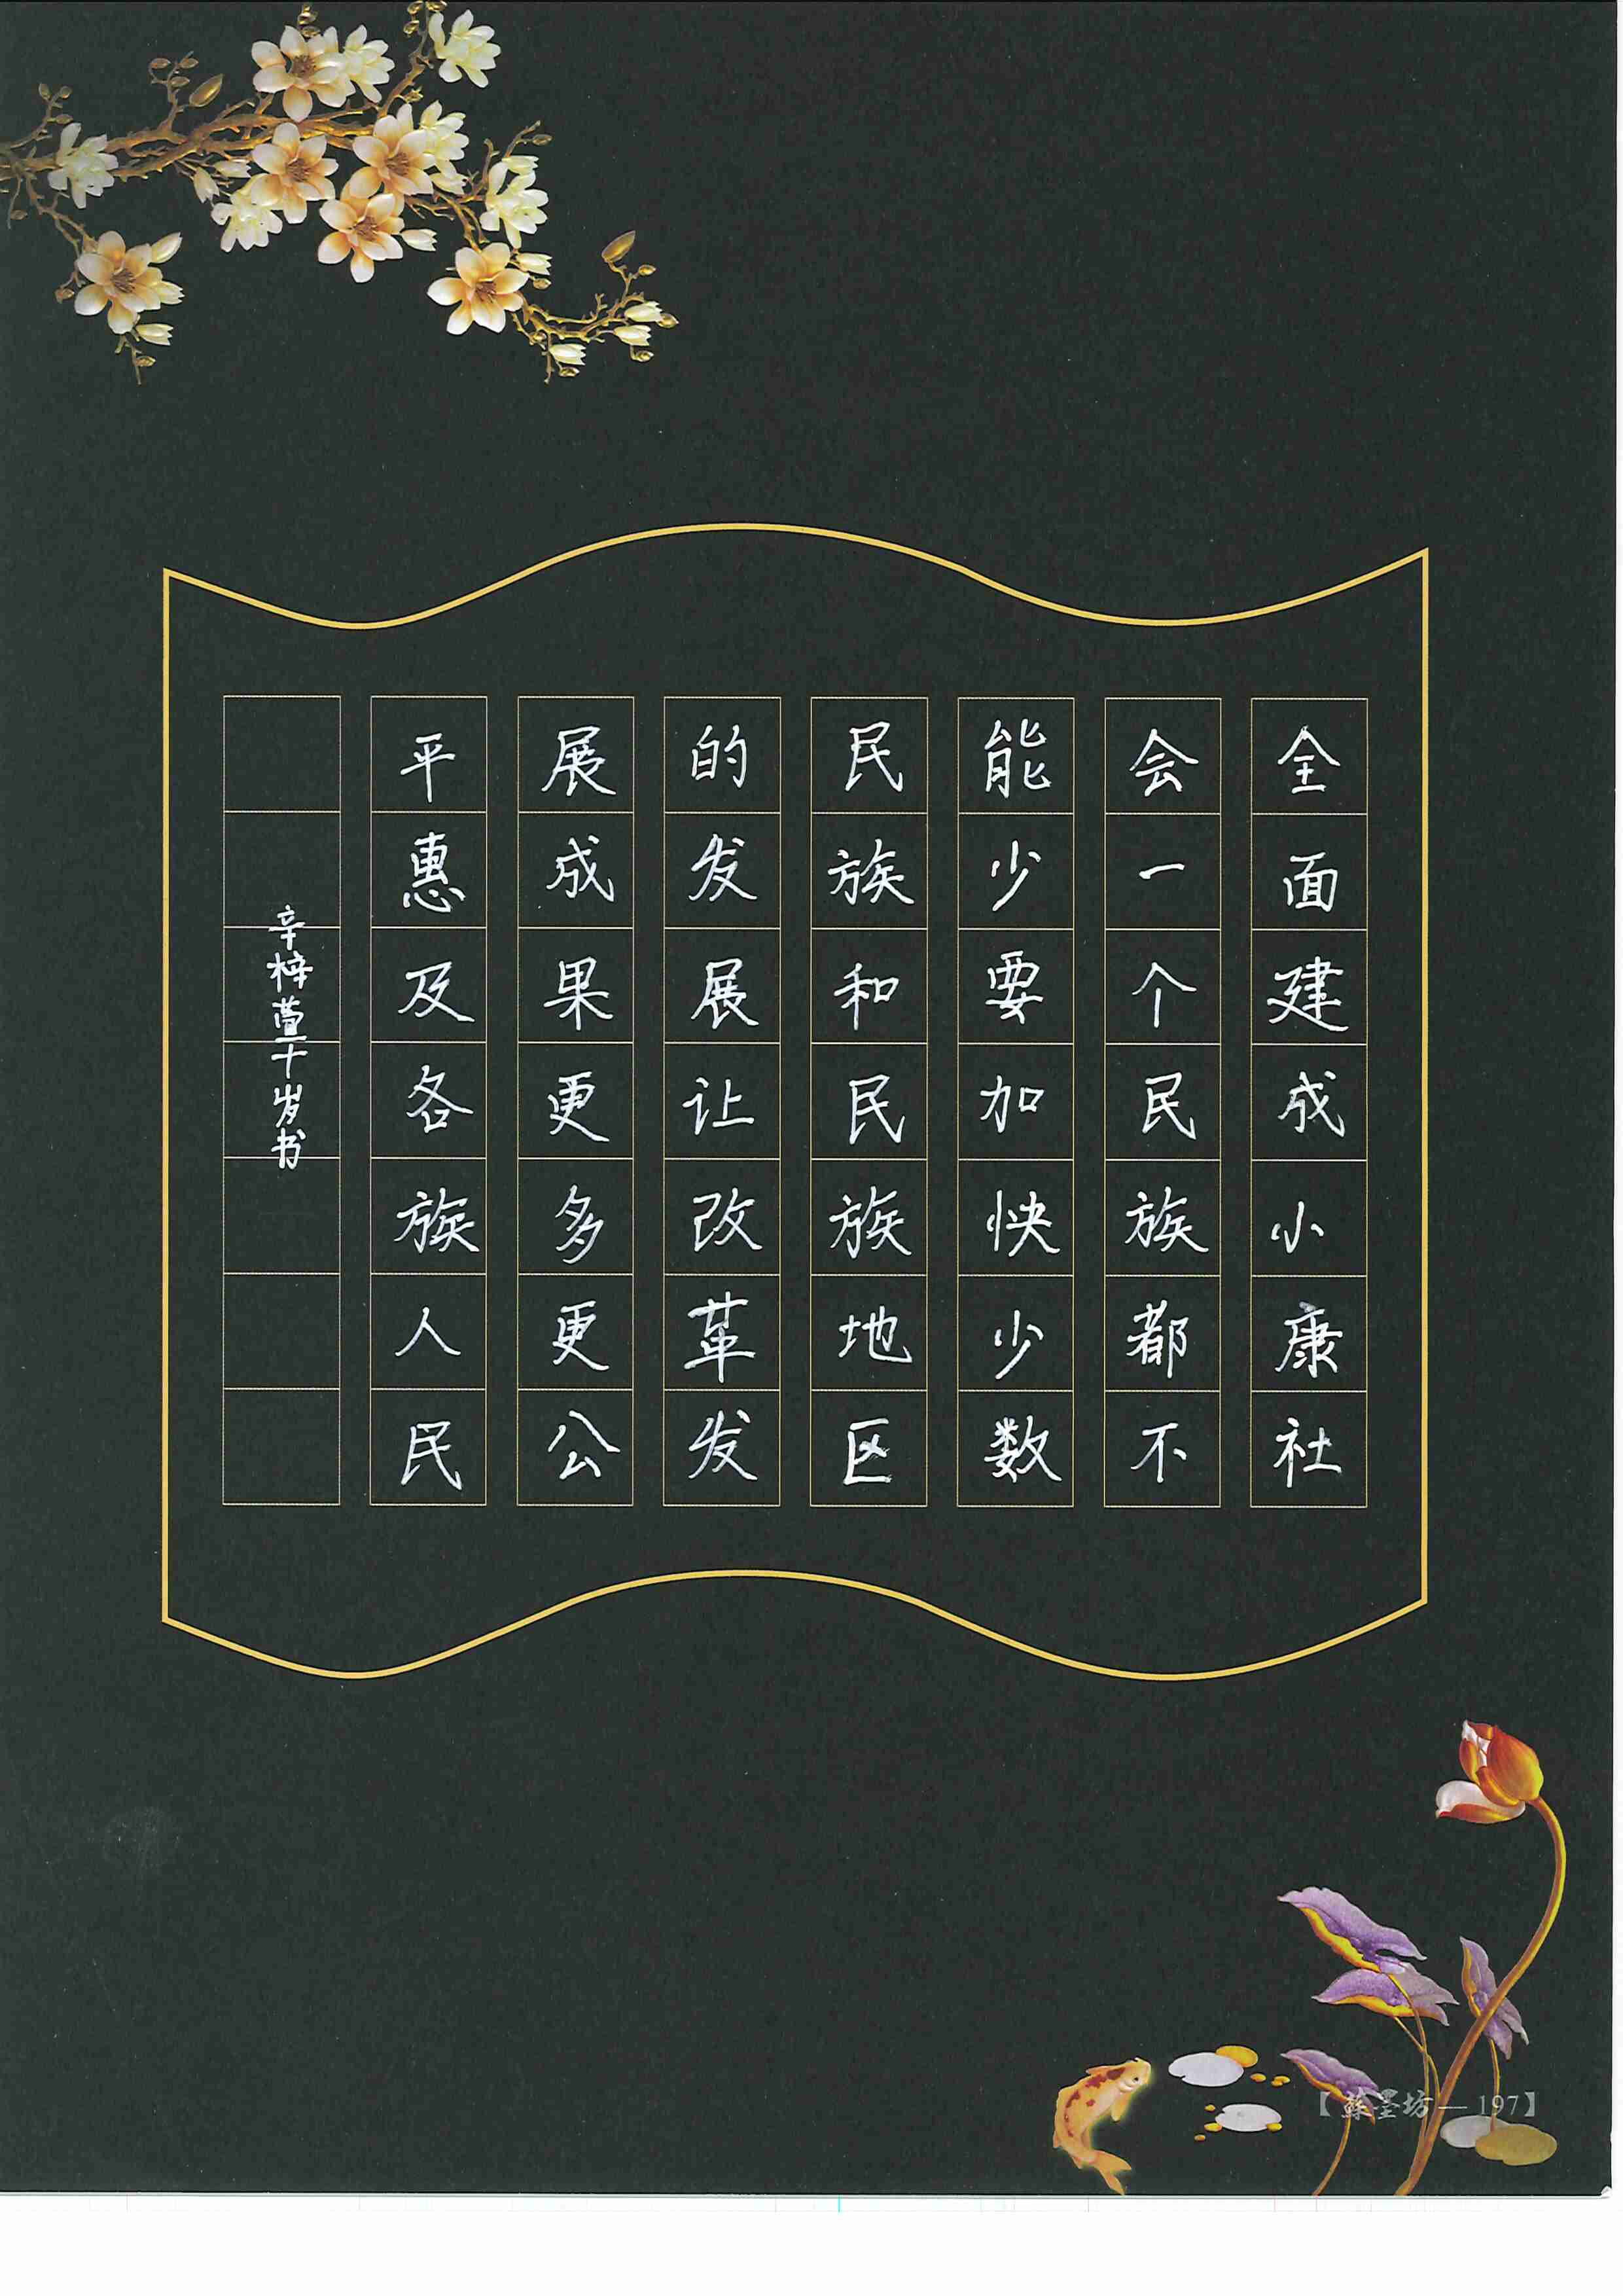 全面建成小康社
会一个民族都不
能少要加快少数
民族和民族地区
的发展让改革发
展成果更多更公
平惠及各族人民
辛梓萱十岁书
【苏墨坊—197】